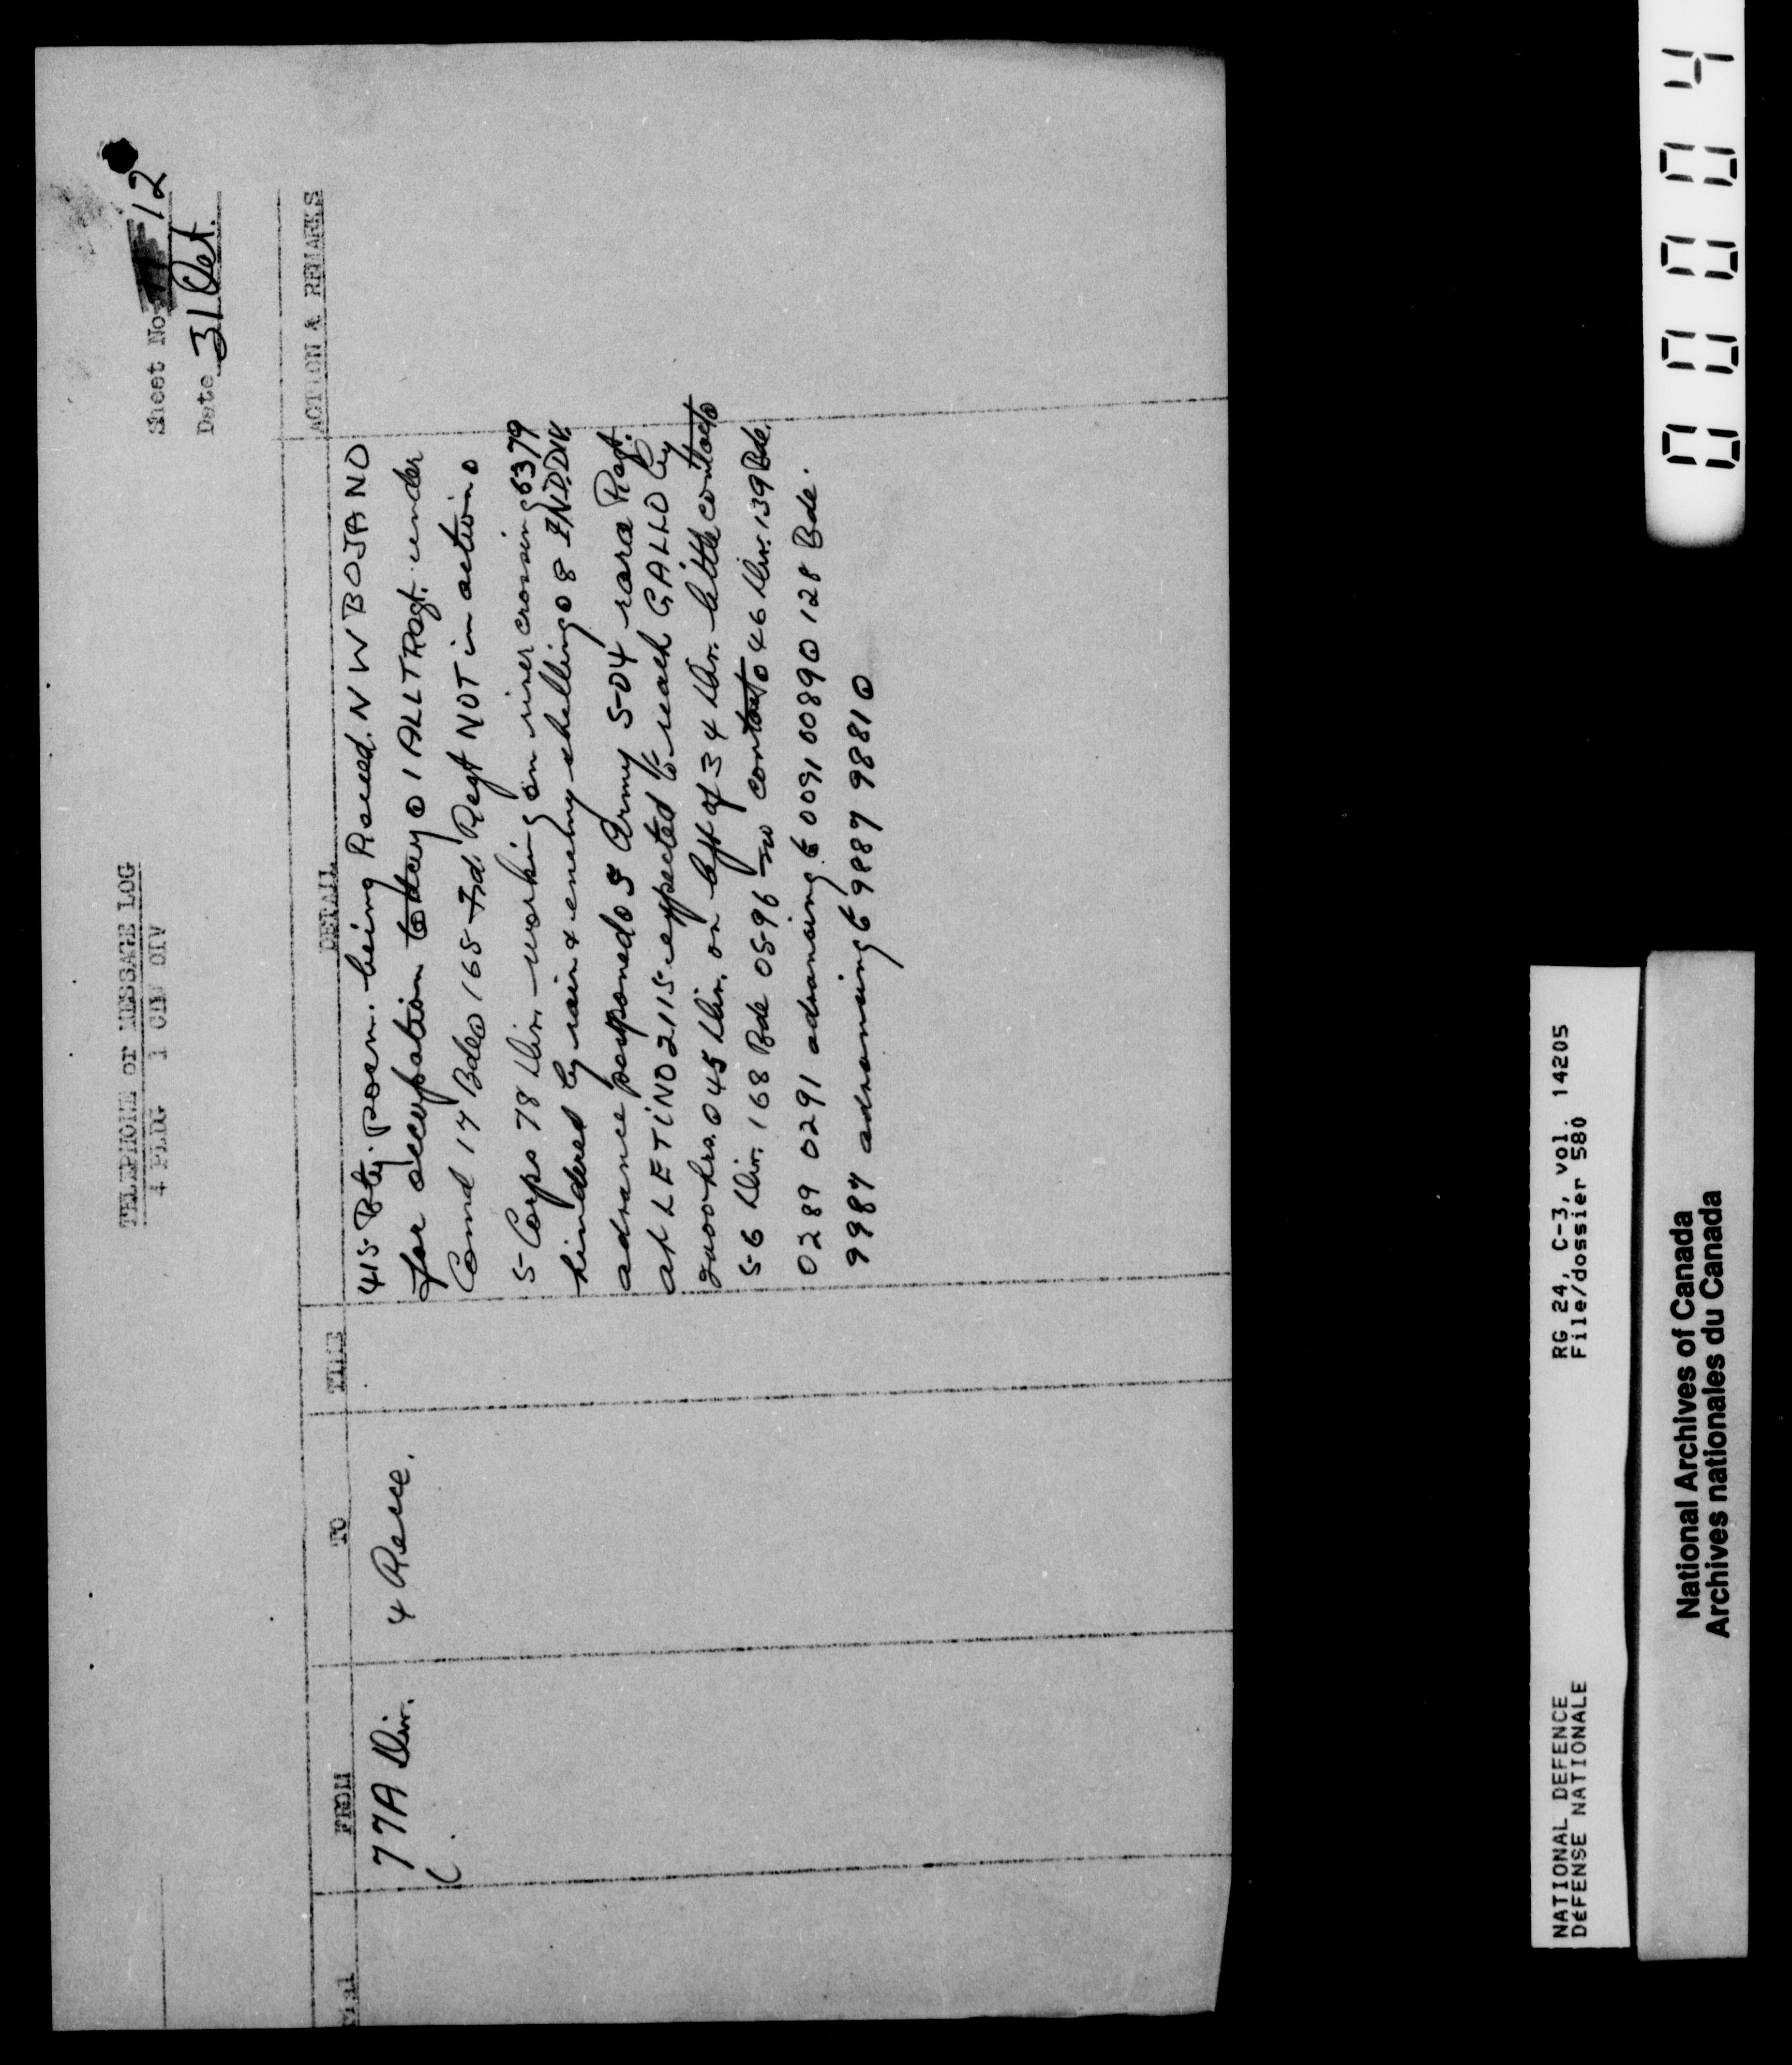 TELEPHONE or MESSAGE LOG
4 FLDG 1 CDN DIV
Sheet No 12
Date 31 Oct.
FROM TO TIME DETAIL ACTION & REMARKS
77A Div. 4 Recce.
415 Bty. posn. being Recced. N W BOJANO
for occupation today o 1 ALLT Regt. under
Comd 17 Bde o 165 Fd. Regt NOT in action o
5 Corps 78 Div. working on river crossing 6379
hindered by rain & enemy shelling o 8 IND. DIV.
advance postponed o 5 Army 504 Regt.
at LETINO 2115 expected to reach GALLO by
hrs. o 45 Div. on left of 34 Div. little contact o
56 Div. 168 Bde 0596 no contact o 46 Div. 139 Bde.
0289 0291 advancing to 0091 0089 o 128 Bde.
9987 advancing to 9887 9881 o
NATIONAL DEFENCE
DÉFENSE NATIONALE
RG 24, C-3, vol. 14205
File/dossier 580
National Archives of Canada
Archives nationales du Canada
00004